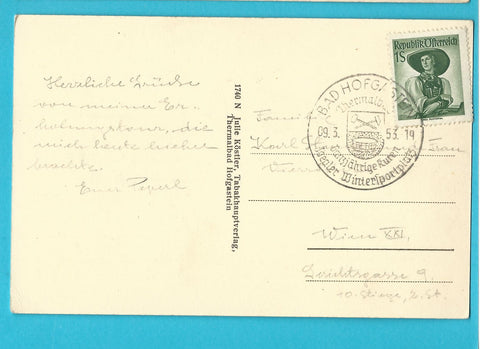 Herrliche Grüße
von meiner Er-
holungstour, die
mich heute hieher
brachte.
Euer Peperl
1740 N Julie Köstler, Tabakhauptverlag,
Thermalbad Hofgastein
Republik Österreich
1S
BAD HOFGASTEIN
Thermalbad
09. 3. 53. 14
Ganzjährige Kuren
Idealer Wintersportplatz
Karl Frau
Wien XXI.
10. Stiege, 2. St.